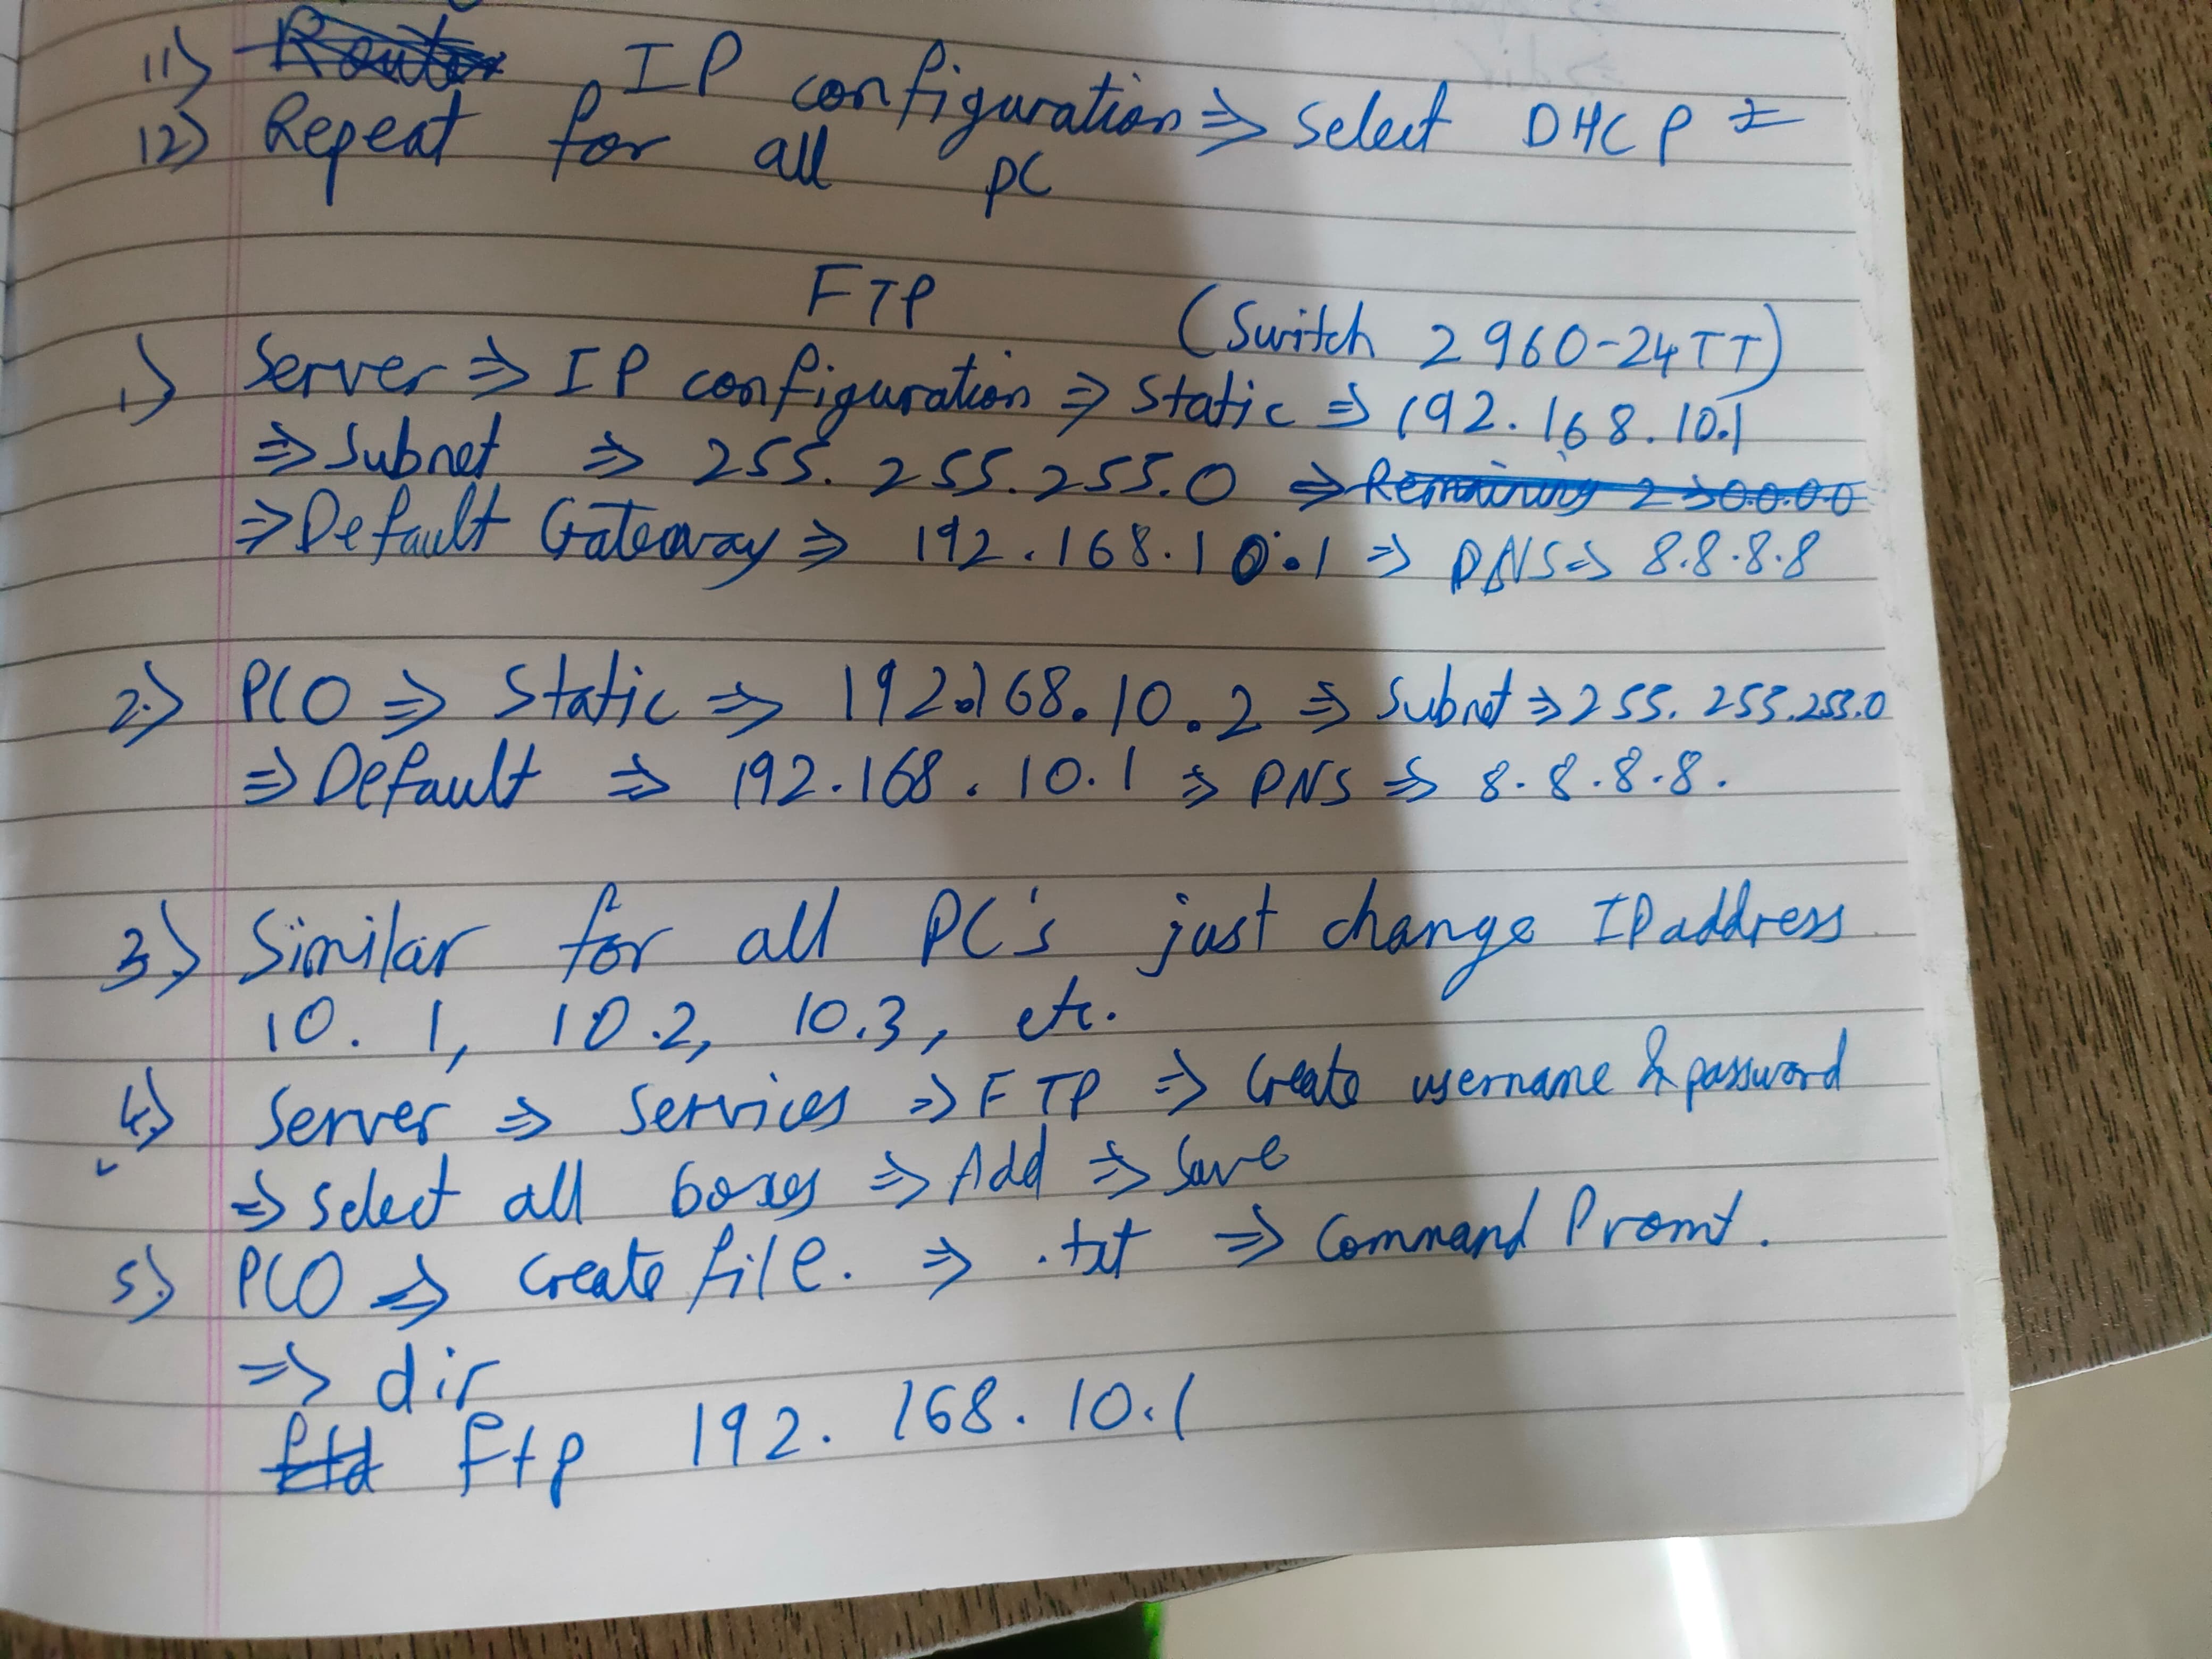 11) Router IP configuration ⇒ Select DHCP
12) Repeat for all PC
FTP (Switch 2960-24TT)
1.) Server ⇒ IP configuration ⇒ Static ⇒ 192.168.10.1
⇒ Subnet ⇒ 255.255.255.0 ⇒ Remaining
⇒ Default Gateway ⇒ 192.168.10.1 ⇒ DNS ⇒ 8.8.8.8
2.) PC0 ⇒ Static ⇒ 192.168.10.2 ⇒ Subnet ⇒ 255.255.255.0
⇒ Default ⇒ 192.168.10.1 ⇒ DNS ⇒ 8.8.8.8.
3.) Similar for all PC's just change IP address
10.1, 10.2, 10.3, etc.
4.) Server ⇒ Services ⇒ FTP ⇒ Create username & password
⇒ Select all boxes ⇒ Add ⇒ Save
5.) PC0 ⇒ Create file. ⇒ .txt ⇒ Command Promt.
⇒ dir
ftd ftp 192.168.10.1